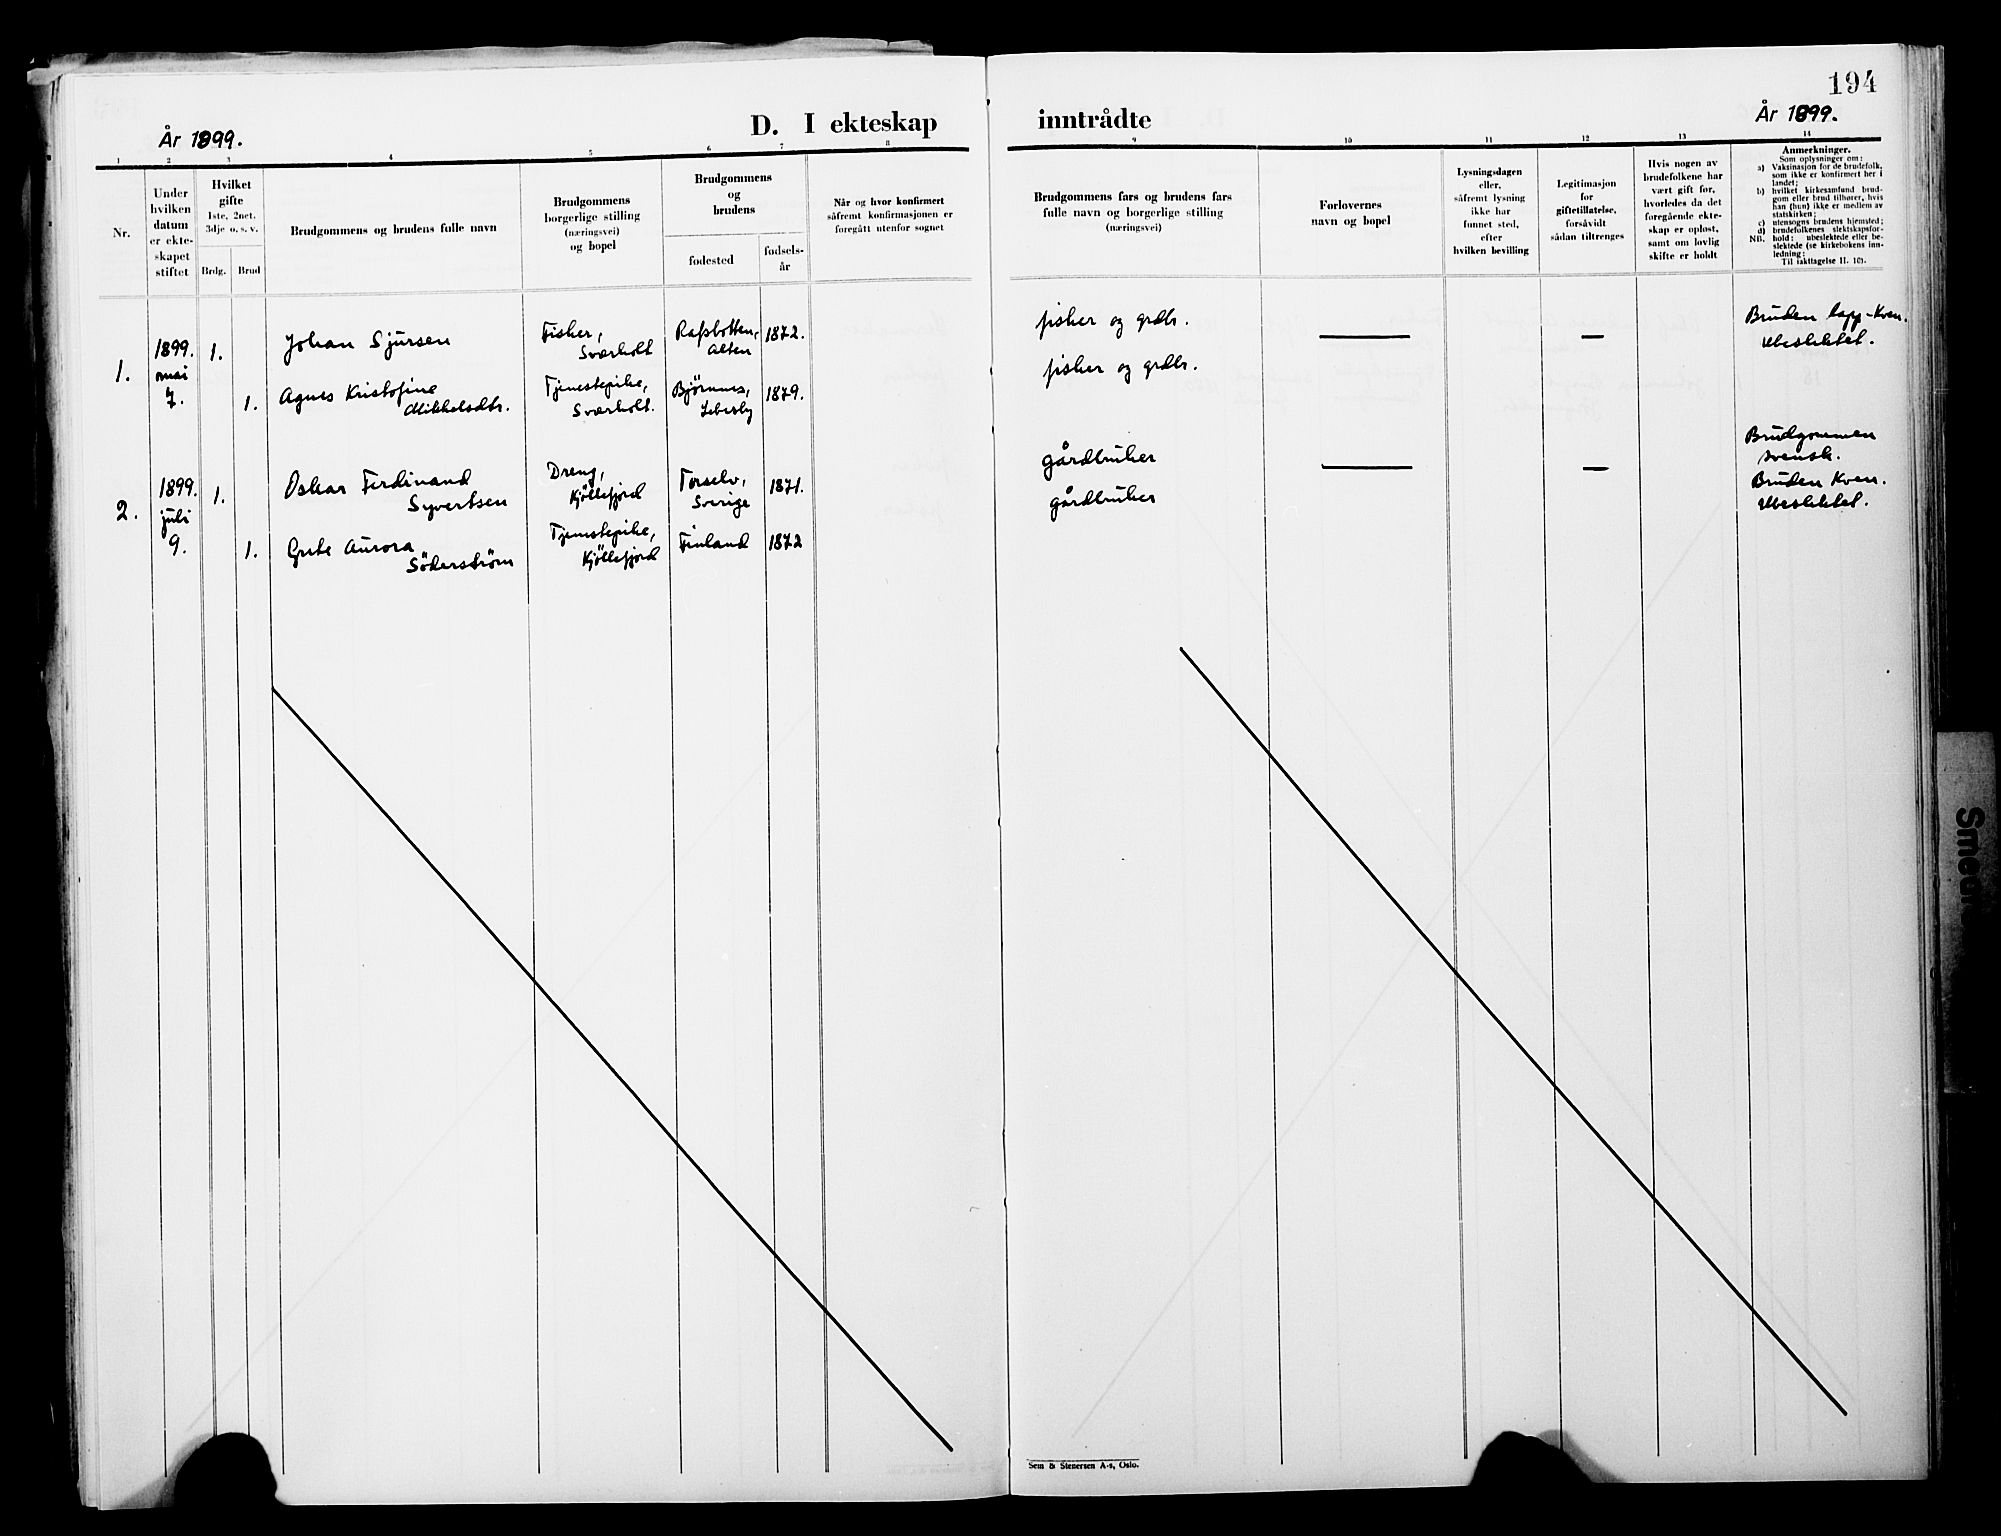 194
År 1899.
D. I ekteskap
inntrådte
År 1899.
1 2 3 4 5 6 7 8
9 10 11 12 13 14
Nr.
Under
hvilken
datum
er ekte-
skapet
stiftet
Hvilket
gifte
1ste, 2net,
3dje o. s. v.
Brdg.
Brud
Brudgommens og brudens fulle navn
Brudgommens
borgerlige stilling
(næringsvei)
og bopel
Brudgommens
og
brudens
fødested
fødsels-
år
Når og hvor konfirmert
såfremt konfirmasjonen er
foregått utenfor sognet
Brudgommens fars og brudens fars
fulle navn og borgerlige stilling
(næringsvei)
Forlovernes
navn og bopel
Lysningsdagen
eller,
såfremt lysning
ikke har
funnet sted,
efter
hvilken bevilling
Legitimasjon
for
giftetillatelse,
forsåvidt
sådan tiltrenges
Hvis nogen av
brudefolkene har
vært gift før,
hvorledes da det
foregående ekte-
skap er opløst,
samt om lovlig
skifte er holdt
Anmerkninger.
Som oplysninger om:
a) Vaksinasjon for de brudefolk,
som ikke er konfirmert her i
landet;
b) hvilket kirkesamfund brud-
gom eller brud tilhører, hvis
han (hun) ikke er medlem av
statskirken;
c) utensogns brudens hjemsted;
d) brudefolkenes slektskapsfor-
NB. hold: ubeslektede eller be-
slektede (se kirkebokens inn-
ledning;
Til iakttagelse II. 10).
1.
1899.
mai
7.
1.
Johan Sjursen
Fisker,
Sværholt
Rafsbotten,
Alten
1872.
fisker og grdbr.
—
—
Bruden lapp-Kven.
Ubeslektet.
1.
Agnes Kristofine
Mikkelsdtr.
Tjenestepike,
Sværholt.
Bjørnnes,
Lebesby
1879.
fisker og grdbr.
2.
1899.
juli
9.
1.
Oskar Ferdinand
Syvertsen
Dreng,
Kjöllefjord
Torselv,
Sverige
1871.
gårdbruker
—
—
Brudgommen
svensk.
1.
Grete Aurora
Söderström
Tjenestepike,
Kjöllefjord
Finland
1872
gårdbruker
Bruden Kven.
Ubeslektet.
Sem & Stenersen A-s, Oslo.